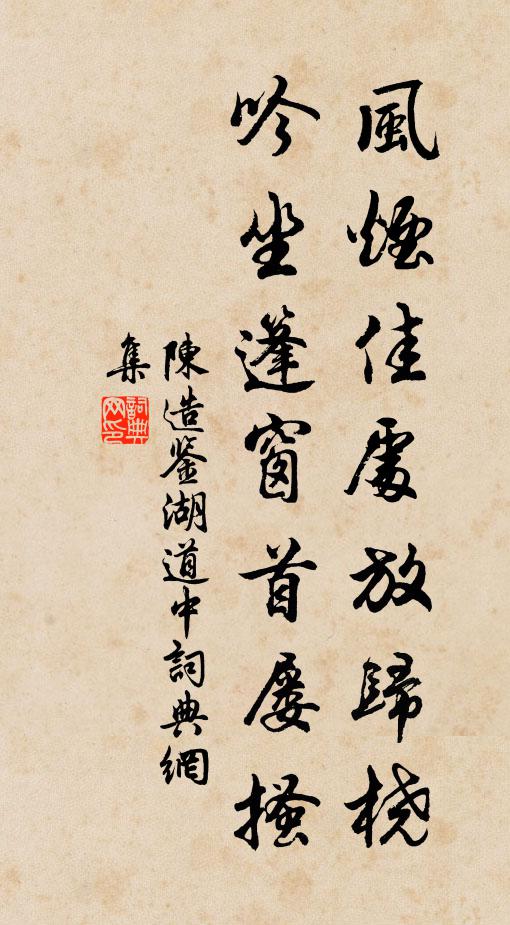 風煙佳處放歸橈
吟坐篷窗首屢搔
陳造鉴湖道中詞典網
集
詞典網印